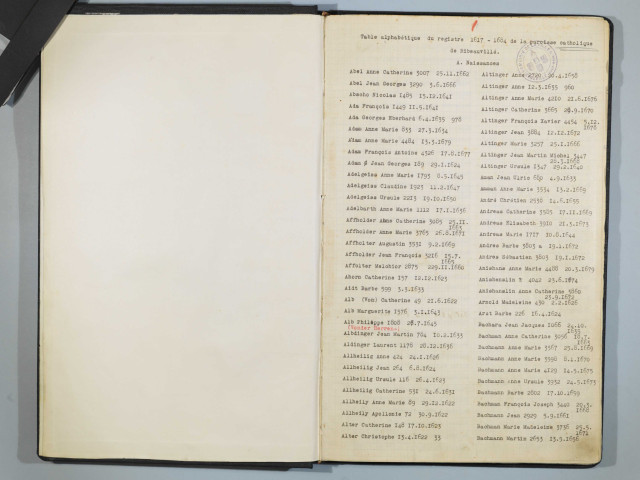 Table alphabétique du registre 1617 - 1684 de la paroisse catholique
de Ribeauvillé.
A. Naissances
Abel Anne Catherine 3007 25.11.1662
Abel Jean Georges 3290 3.6.1666
Abscho Nicolas 1485 13.12.1641
Ada François 1449 11.9.1641
Ada Georges Eberhard 6.4.1635 970
Adam Anne Marie 633 27.3.1634
Adam Anne Marie 4484 13.3.1679
Adam François Antoine 4326 17.8.1677
Adam Jean Georges 189 29.1.1624
Adelgeiss Anne Marie 1793 8.5.1645
Adelgeiss Claudine 1923 11.2.1647
Adelgeiss Ursule 2213 19.10.1650
Adelbarth Anne Marie 1112 17.1.1636
Affholder Anne Catherine 3085 25.11.
1663
Affholder Anne Marie 3765 26.8.1671
Affholter Augustin 3531 9.2.1669
Affholder Jean François 3216 15.7.
1665
Affolter Melchior 2875 29.11.1660
Ahorn Catherine 157 12.12.1623
Aidt Barbe 599 3.3.1633
Alb (Von) Catherine 49 21.6.1622
Alb Marguerite 1576 3.1.1643
Alb Philippe 1808 28.7.1645
Albdinger Jean Martin 784 10.2.1633
Aldinger Laurent 1178 28.12.1636
Allheilig Anne 424 24.1.1628
Allheilig Jean 264 6.8.1624
Allheilig Ursule 116 28.4.1623
Allheilig Catherine 551 24.6.1631
Allheily Anne Marie 89 29.12.1622
Allheily Apollonie 72 30.9.1622
Alter Catherine 148 17.10.1623
Alter Christophe 13.4.1622 33
Altinger Anne 10.4.1658
Altinger Anne 12.3.1635 960
Altinger Anne Marie 4210 21.6.1676
Altinger Catherine 3663 28.9.1670
Altinger François Xavier 4454 3.12.
1678
Altinger Jean 3884 12.12.1672
Altinger Marie 3257 25.1.1666
Altinger Jean Martin Michel 3447
Altinger Ursule 1347 29.2.1640
Aman Jean Kirc 6.9.1633
Amman Anne Marie 3534 13.2.1669
André Chrétien 2550 14.6.1655
Andreas Catherine 3583 17.11.1669
Andreas Elisabeth 3910 21.5.1673
Andreas Marie 1717 10.8.1644
Andres Barbe 3803 a 19.1.1672
Andres Sébastien 3803 19.1.1672
Anishuns Anne Marie 4488 20.3.1679
Anishenslin B 4042 25.6.1674
Anishenslin Anne Catherine 3860
25.9.1672
Arnold Madeleine 430 2.2.1628
Arzt Barbe 226 16.4.1624
Bachmann Anne Catherine 3296 18.7.
Bachmann Anne Marie 3367 23.8.1669
Bachmann Anne Marie 3590 8.1.1670
Bachmann Anne Marie 4129 14.5.1675
Bachmann Anne Ursule 3932 24.5.1673
Bachmann Barbe 2802 17.10.1659
Bachman François Joseph 3440 29.3.
1668
Bachmann Jean 2929 3.9.1661
Bachmann Marie Madeleine 3736 25.5.
1671
Bachmann Martin 2653 13.9.1656